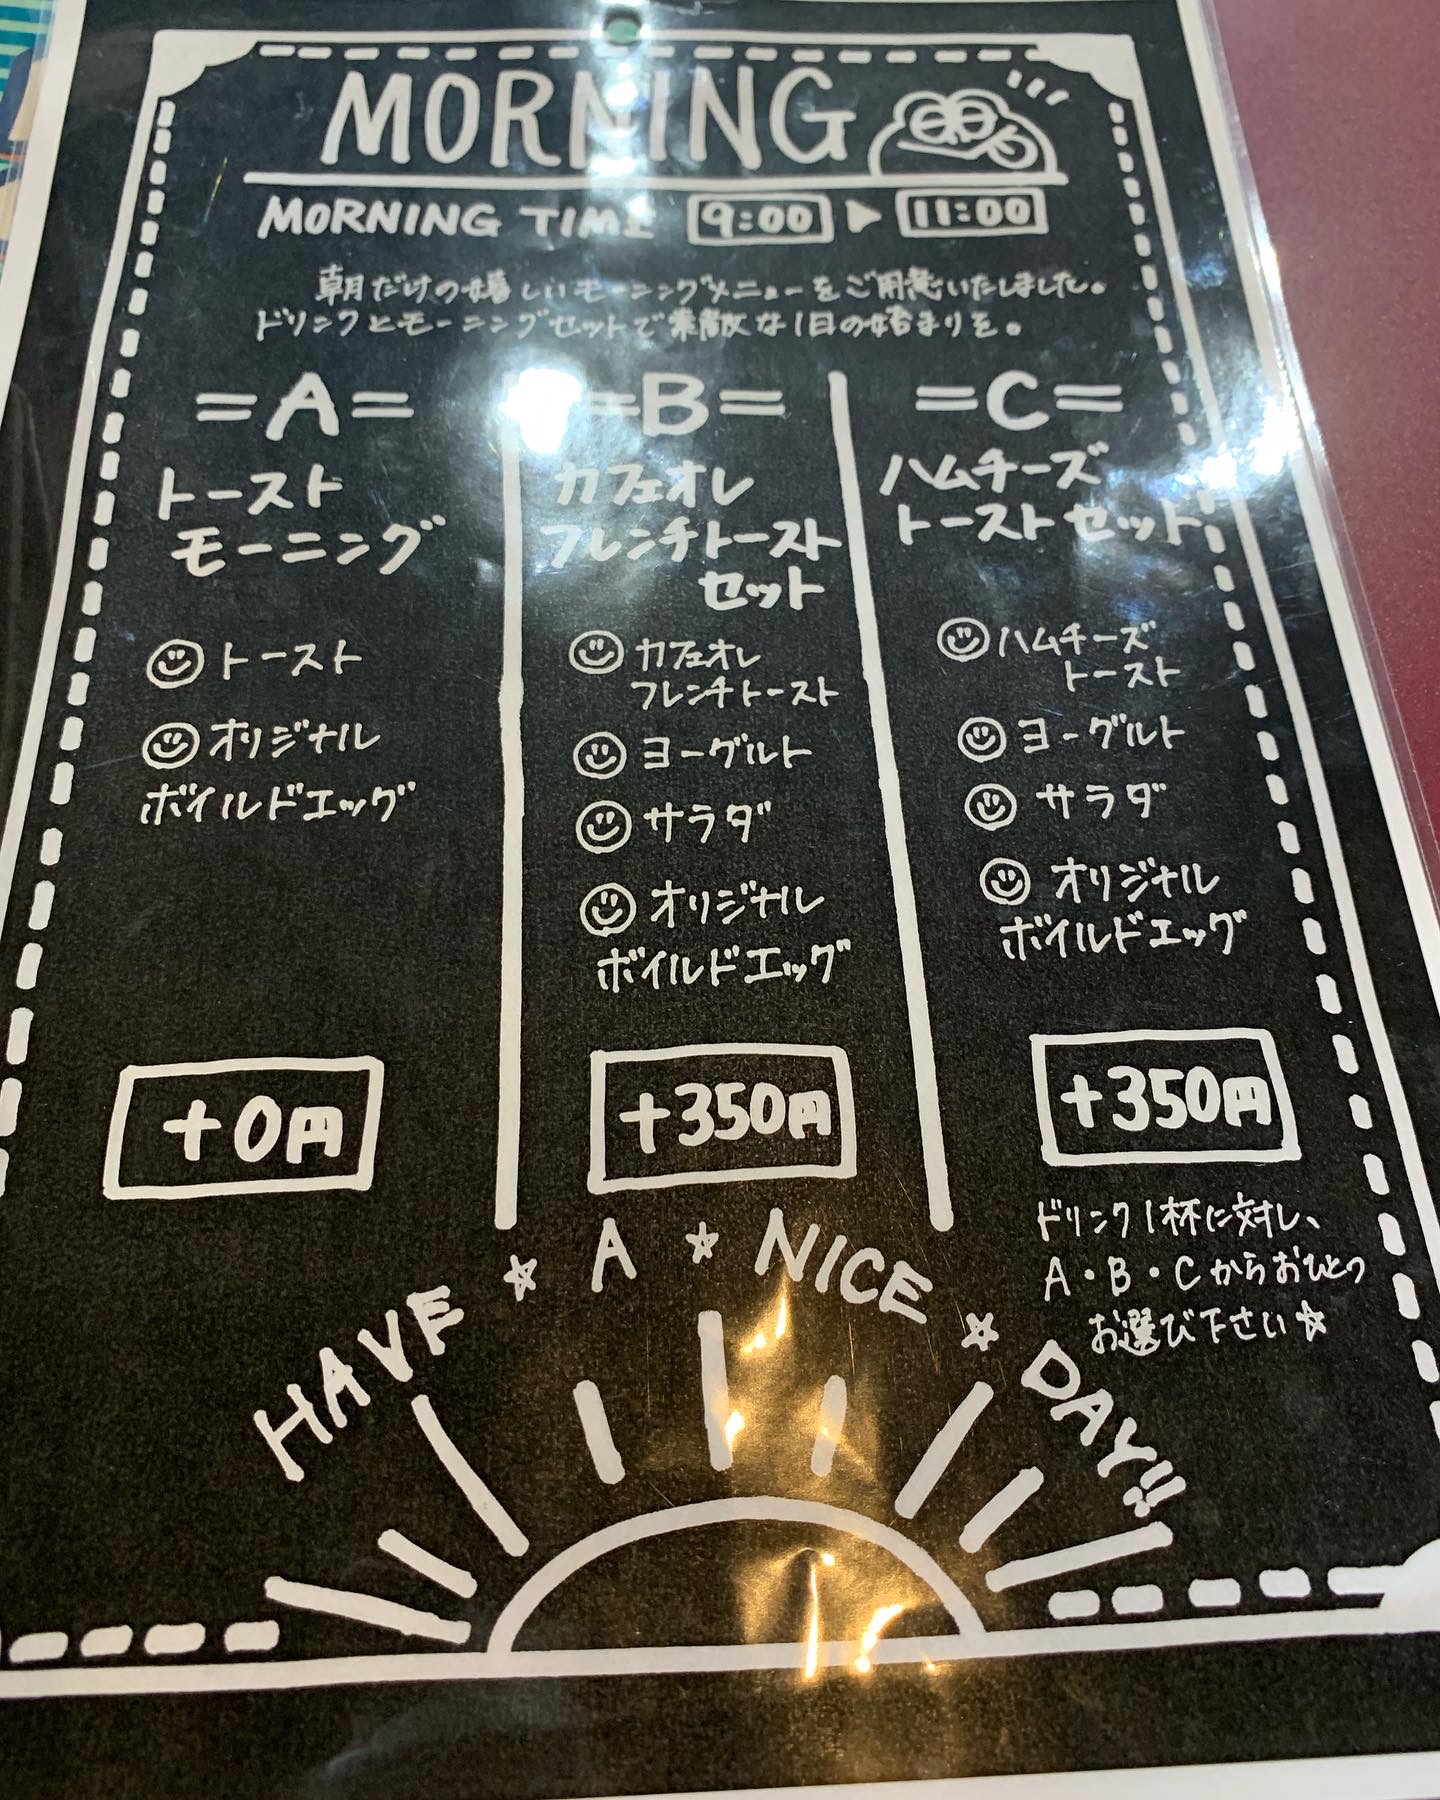 MORNING
MORNING TIME 9:00 ▶ 11:00
朝だけの嬉しいモーニングメニューをご用意いたしました。
ドリンクとモーニングセットで素敵な1日の始まりを。
=A=
トースト
モーニング
トースト
オリジナル
ボイルドエッグ
+0円
=B=
カフェオレ
フレンチトースト
セット
カフェオレ
フレンチトースト
ヨーグルト
サラダ
オリジナル
ボイルドエッグ
+350円
=C=
ハムチーズ
トーストセット
ハムチーズ
トースト
ヨーグルト
サラダ
オリジナル
ボイルドエッグ
+350円
ドリンク1杯に対し、
A・B・Cからおひとつ
お選び下さい☆
HAVE ☆ A ☆ NICE ☆ DAY!!